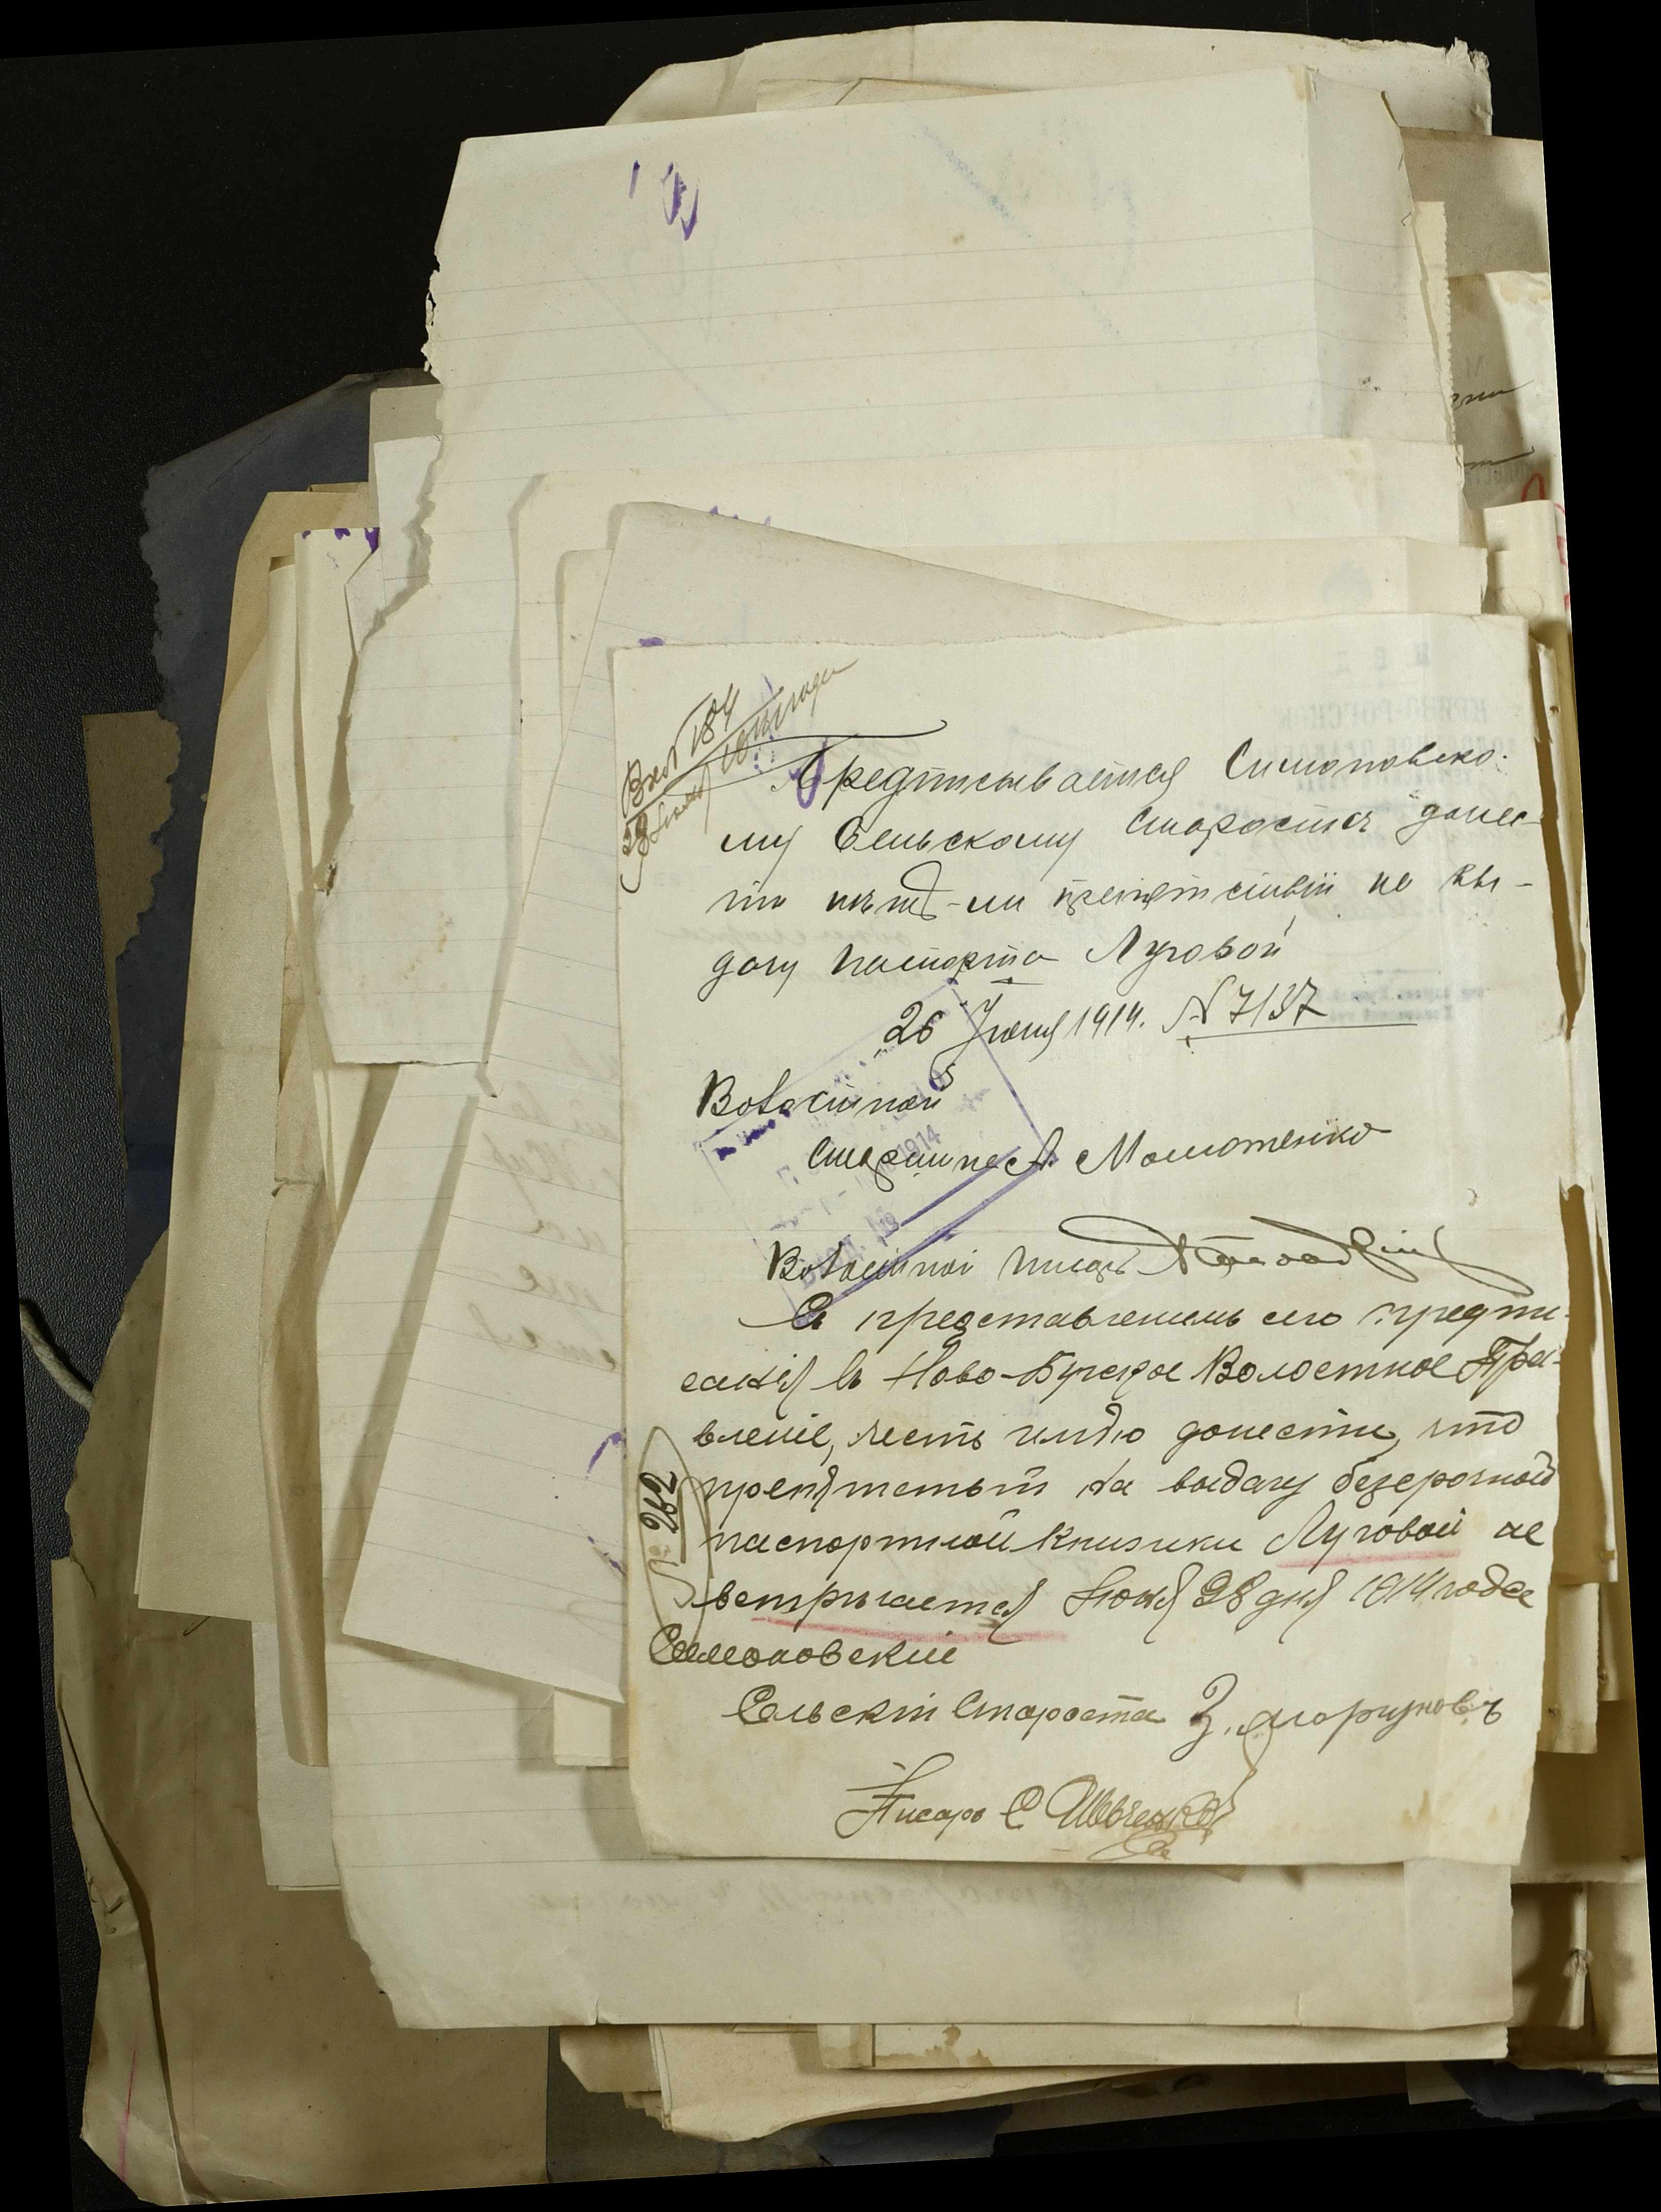 Вход № 184
28 Июня 1914 года
Предписывается Симоновско-
му Сельскому Старосте донес-
ти нетъ-ли препятствій на вы-
дачу паспорта Луговой
26 Іюня 1914. № 7137
Волостной
Старшина А.
1914
Волостной писарь
Съ представленіемъ сего предпи-
санія въ Ново-Бугское Волостное Пра-
вленіе, честь имѣю донести, что
препятствій на выдачу безсрочной
паспортной книжки Луговой не
встрѣчается Июня 28 дня 1914 года
№ 262
Симоновскій
Сельскій Староста З. Моргуновъ
Писарь С Шевченко